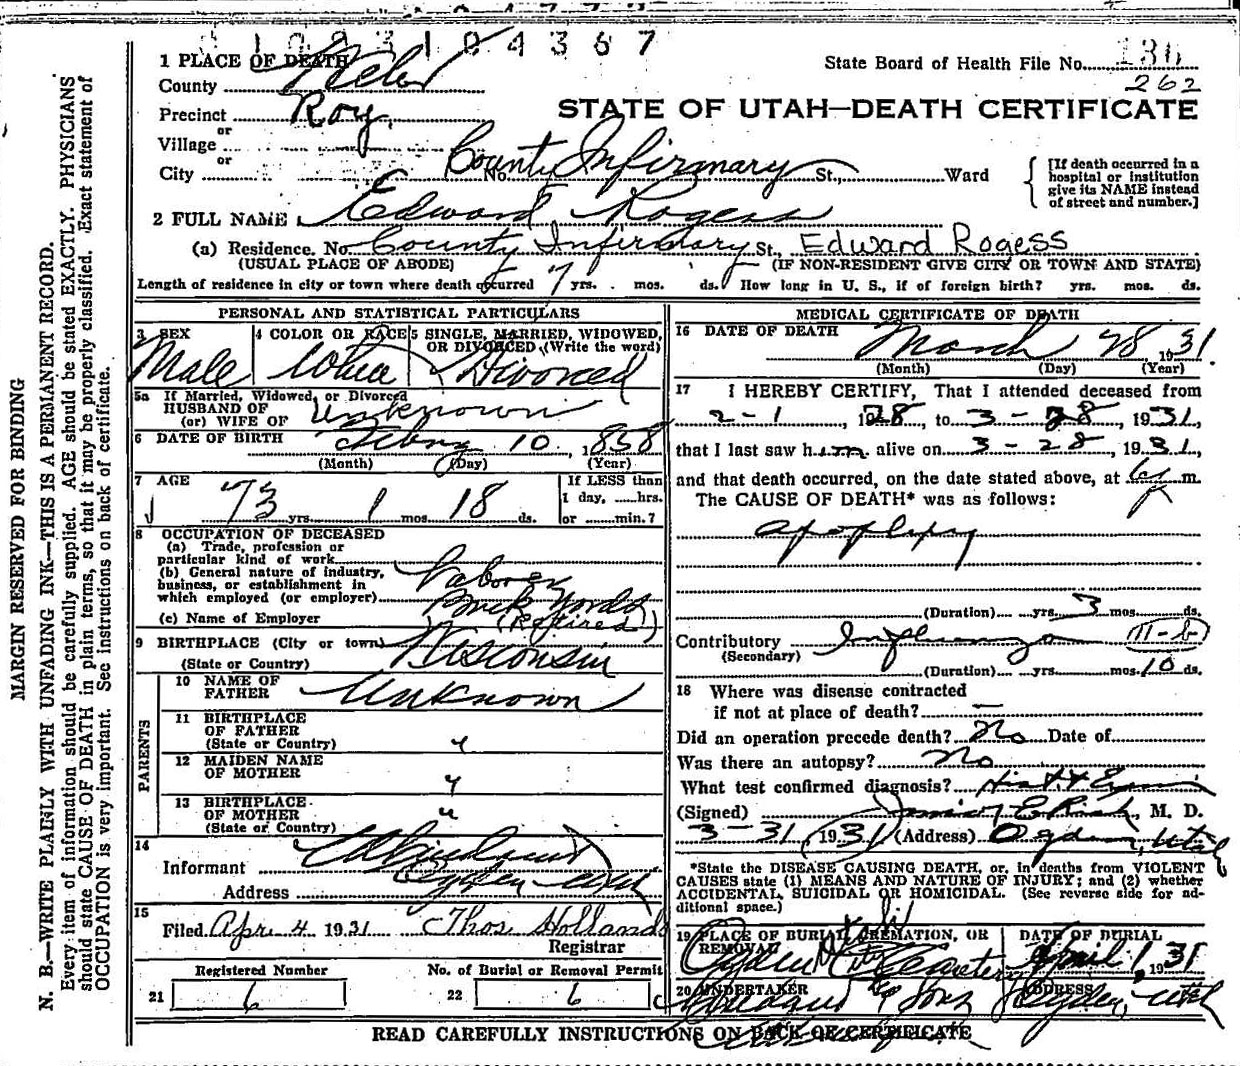 1 0 2 3 1 0 4 3 6 7
1 PLACE OF DEATH
State Board of Health File No. 130
262
County Weber
Precinct Roy
STATE OF UTAH—DEATH CERTIFICATE
or
Village
or
City No. County Infirmary St., Ward
[If death occurred in a
hospital or institution
give its NAME instead
of street and number.]
2 FULL NAME Edward Rogess
(a) Residence. No. County Infirmary St. Edward Rogess
(USUAL PLACE OF ABODE) (IF NON-RESIDENT GIVE CITY OR TOWN AND STATE)
Length of residence in city or town where death occurred 7 yrs. mos. ds. How long in U. S., if of foreign birth? yrs. mos. ds.
PERSONAL AND STATISTICAL PARTICULARS
3 SEX
Male
4 COLOR OR RACE
White
5 SINGLE, MARRIED, WIDOWED,
OR DIVORCED (Write the word)
Divorced
5a If Married, Widowed, or Divorced
HUSBAND OF
(or) WIFE OF Unknown
6 DATE OF BIRTH Febry 10, 1858
(Month) (Day) (Year)
7 AGE
73 yrs. 1 mos. 18 ds.
If LESS than
1 day, ......hrs.
or .......min.?
8 OCCUPATION OF DECEASED
(a) Trade, profession or
particular kind of work
(b) General nature of industry,
business, or establishment in
which employed (or employer)
Laborer
Brick Yards
(c) Name of Employer (Retired)
9 BIRTHPLACE (City or town)
(State or Country) Wisconsin
PARENTS
10 NAME OF
FATHER Unknown
11 BIRTHPLACE
OF FATHER
(State or Country) "
12 MAIDEN NAME
OF MOTHER "
13 BIRTHPLACE
OF MOTHER
(State or Country) "
14
Informant
Address Ogden Utah
15
Filed Apr. 4 1931 Thos Holland
Registrar
Registered Number
21 6
No. of Burial or Removal Permit
22 6
MEDICAL CERTIFICATE OF DEATH
16 DATE OF DEATH March 28 1931.
(Month) (Day) (Year)
17 I HEREBY CERTIFY, That I attended deceased from
2-1, 1928, to 3-28, 1931,
that I last saw him alive on 3-28, 1931,
and that death occurred, on the date stated above, at m.
The CAUSE OF DEATH* was as follows:
apoplexy
(Duration) yrs. 3 mos. ds.
Contributory Influenza III-b
(Secondary)
(Duration) yrs. mos. 10 ds.
18 Where was disease contracted
if not at place of death? —
Did an operation precede death? No Date of
Was there an autopsy? No
What test confirmed diagnosis? Hist & Exam
(Signed) E Rich, M. D.
3-31, 1931 (Address) Ogden, Utah
*State the DISEASE CAUSING DEATH, or, in deaths from VIOLENT
CAUSES state (1) MEANS AND NATURE OF INJURY; and (2) whether
ACCIDENTAL, SUICIDAL OR HOMICIDAL. (See reverse side for ad-
ditional space.)
19 PLACE OF BURIAL, CREMATION, OR
REMOVAL
Ogden City Cemetery Utah
DATE OF BURIAL
April 1, 1931
20 UNDERTAKER
& Sons
ADDRESS
Ogden, Utah
READ CAREFULLY INSTRUCTIONS ON BACK OF CERTIFICATE
MARGIN RESERVED FOR BINDING
N. B.—WRITE PLAINLY WITH UNFADING INK—THIS IS A PERMANENT RECORD.
Every item of information should be carefully supplied. AGE should be stated EXACTLY. PHYSICIANS
should state CAUSE OF DEATH in plain terms, so that it may be properly classified. Exact statement of
OCCUPATION is very important. See instructions on back of certificate.